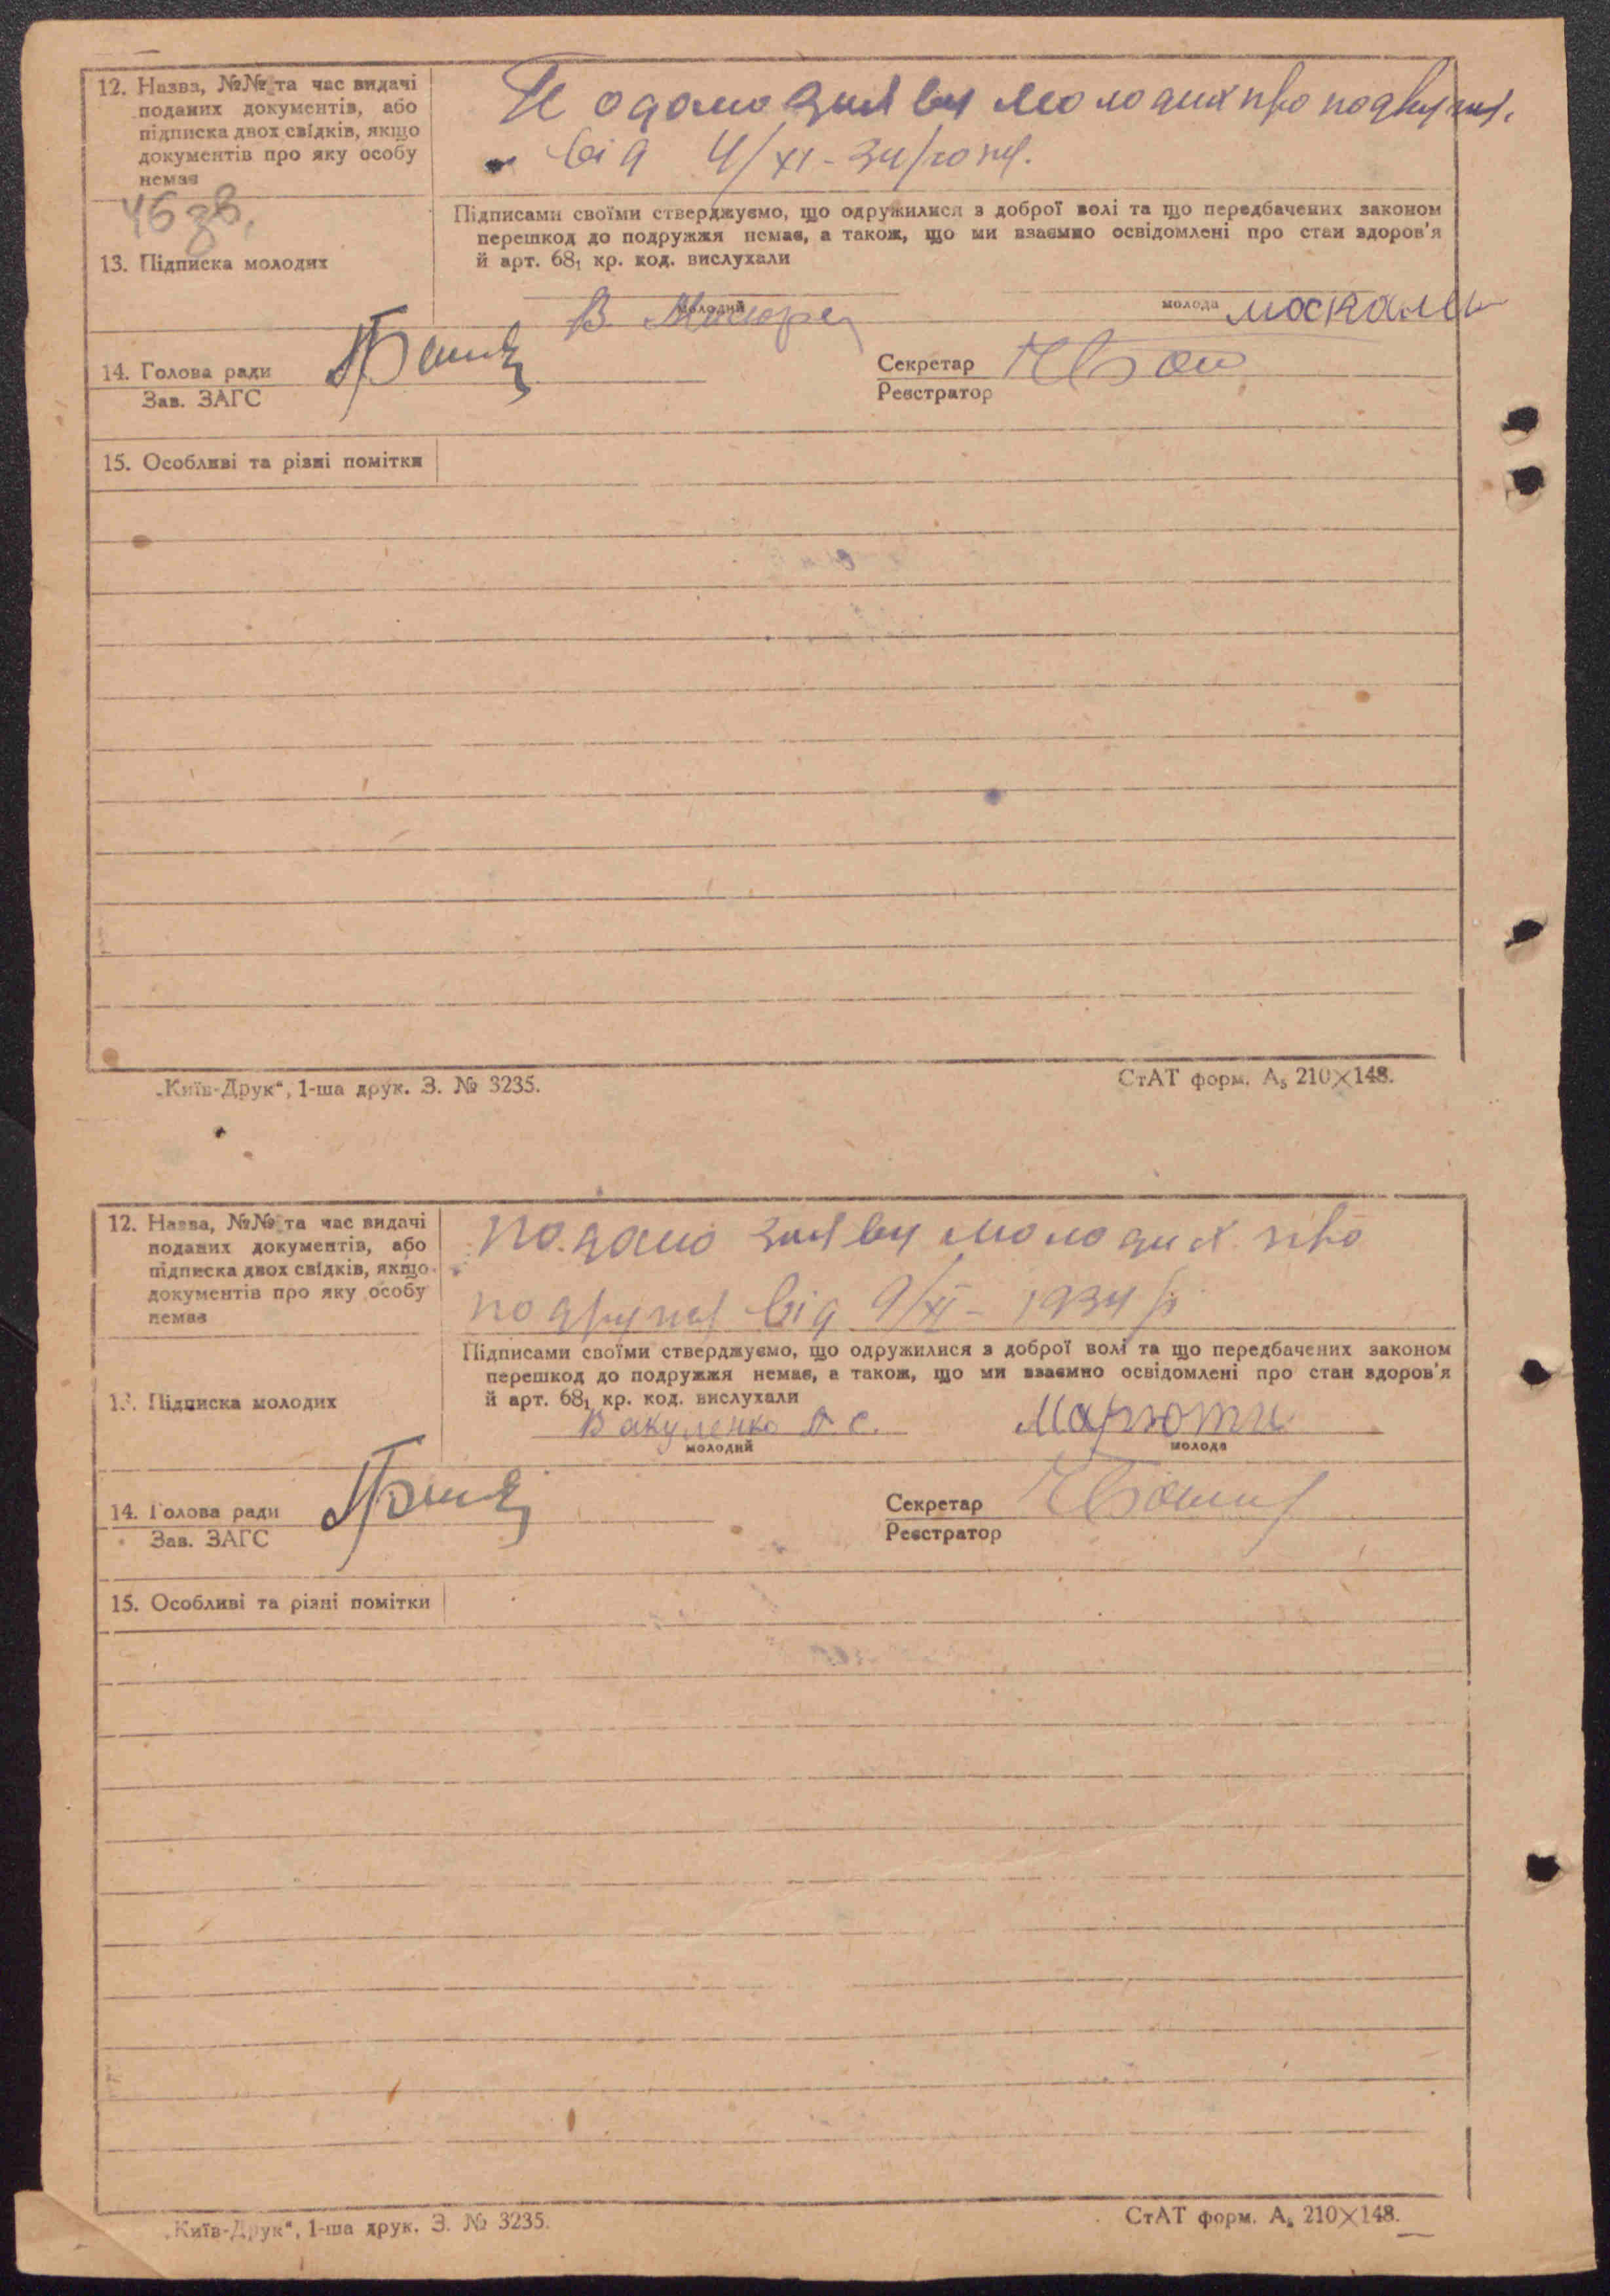 12. Назва, №№ та час видачі
поданих документів, або
підписка двох свідків, якщо
документів про яку особу
немає
Подано заяву молодих про
від 4/XI-34 року.
46 зв.
Підписами своїми стверджуємо, що одружилися з доброї волі та що передбачених законом
перешкод до подружжя немає, а також, що ми взаємно освідомлені про стан здоров'я
й арт. 68₁ кр. код. вислухали
13. Підписка молодих
молодий
В.
молода
14. Голова ради
Зав. ЗАГС
Секретар
Реєстратор
15. Особливі та різні помітки
„Київ-Друк“, 1-ша друк. З. № 3235.
СтАТ форм. А₅ 210×148.
12. Назва, №№ та час видачі
поданих документів, або
підписка двох свідків, якщо
документів про яку особу
немає
Подано заяву молодих про
від 9/XI-1934 р
Підписами своїми стверджуємо, що одружилися з доброї волі та що передбачених законом
перешкод до подружжя немає, а також, що ми взаємно освідомлені про стан здоров'я
й арт. 68₁ кр. код. вислухали
13. Підписка молодих
Вакуленко С.
молодий
молода
14. Голова ради
Зав. ЗАГС
Секретар
Реєстратор
15. Особливі та різні помітки
„Київ-Друк“, 1-ша друк. З. № 3235.
СтАТ форм. А₅ 210×148.